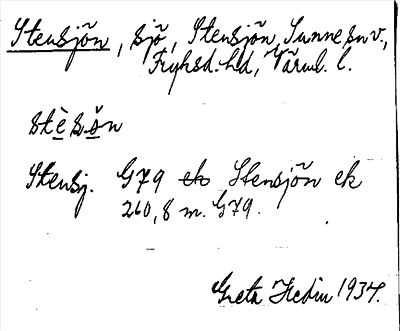 Stensjön, sjö, Stensjön, Sunne sn v.,
Fryksd. hd, Värml. l.
stèsön
Stensj. G79 ek Stensjön ek
260,8 m. G79.
Greta Hedin 1934.